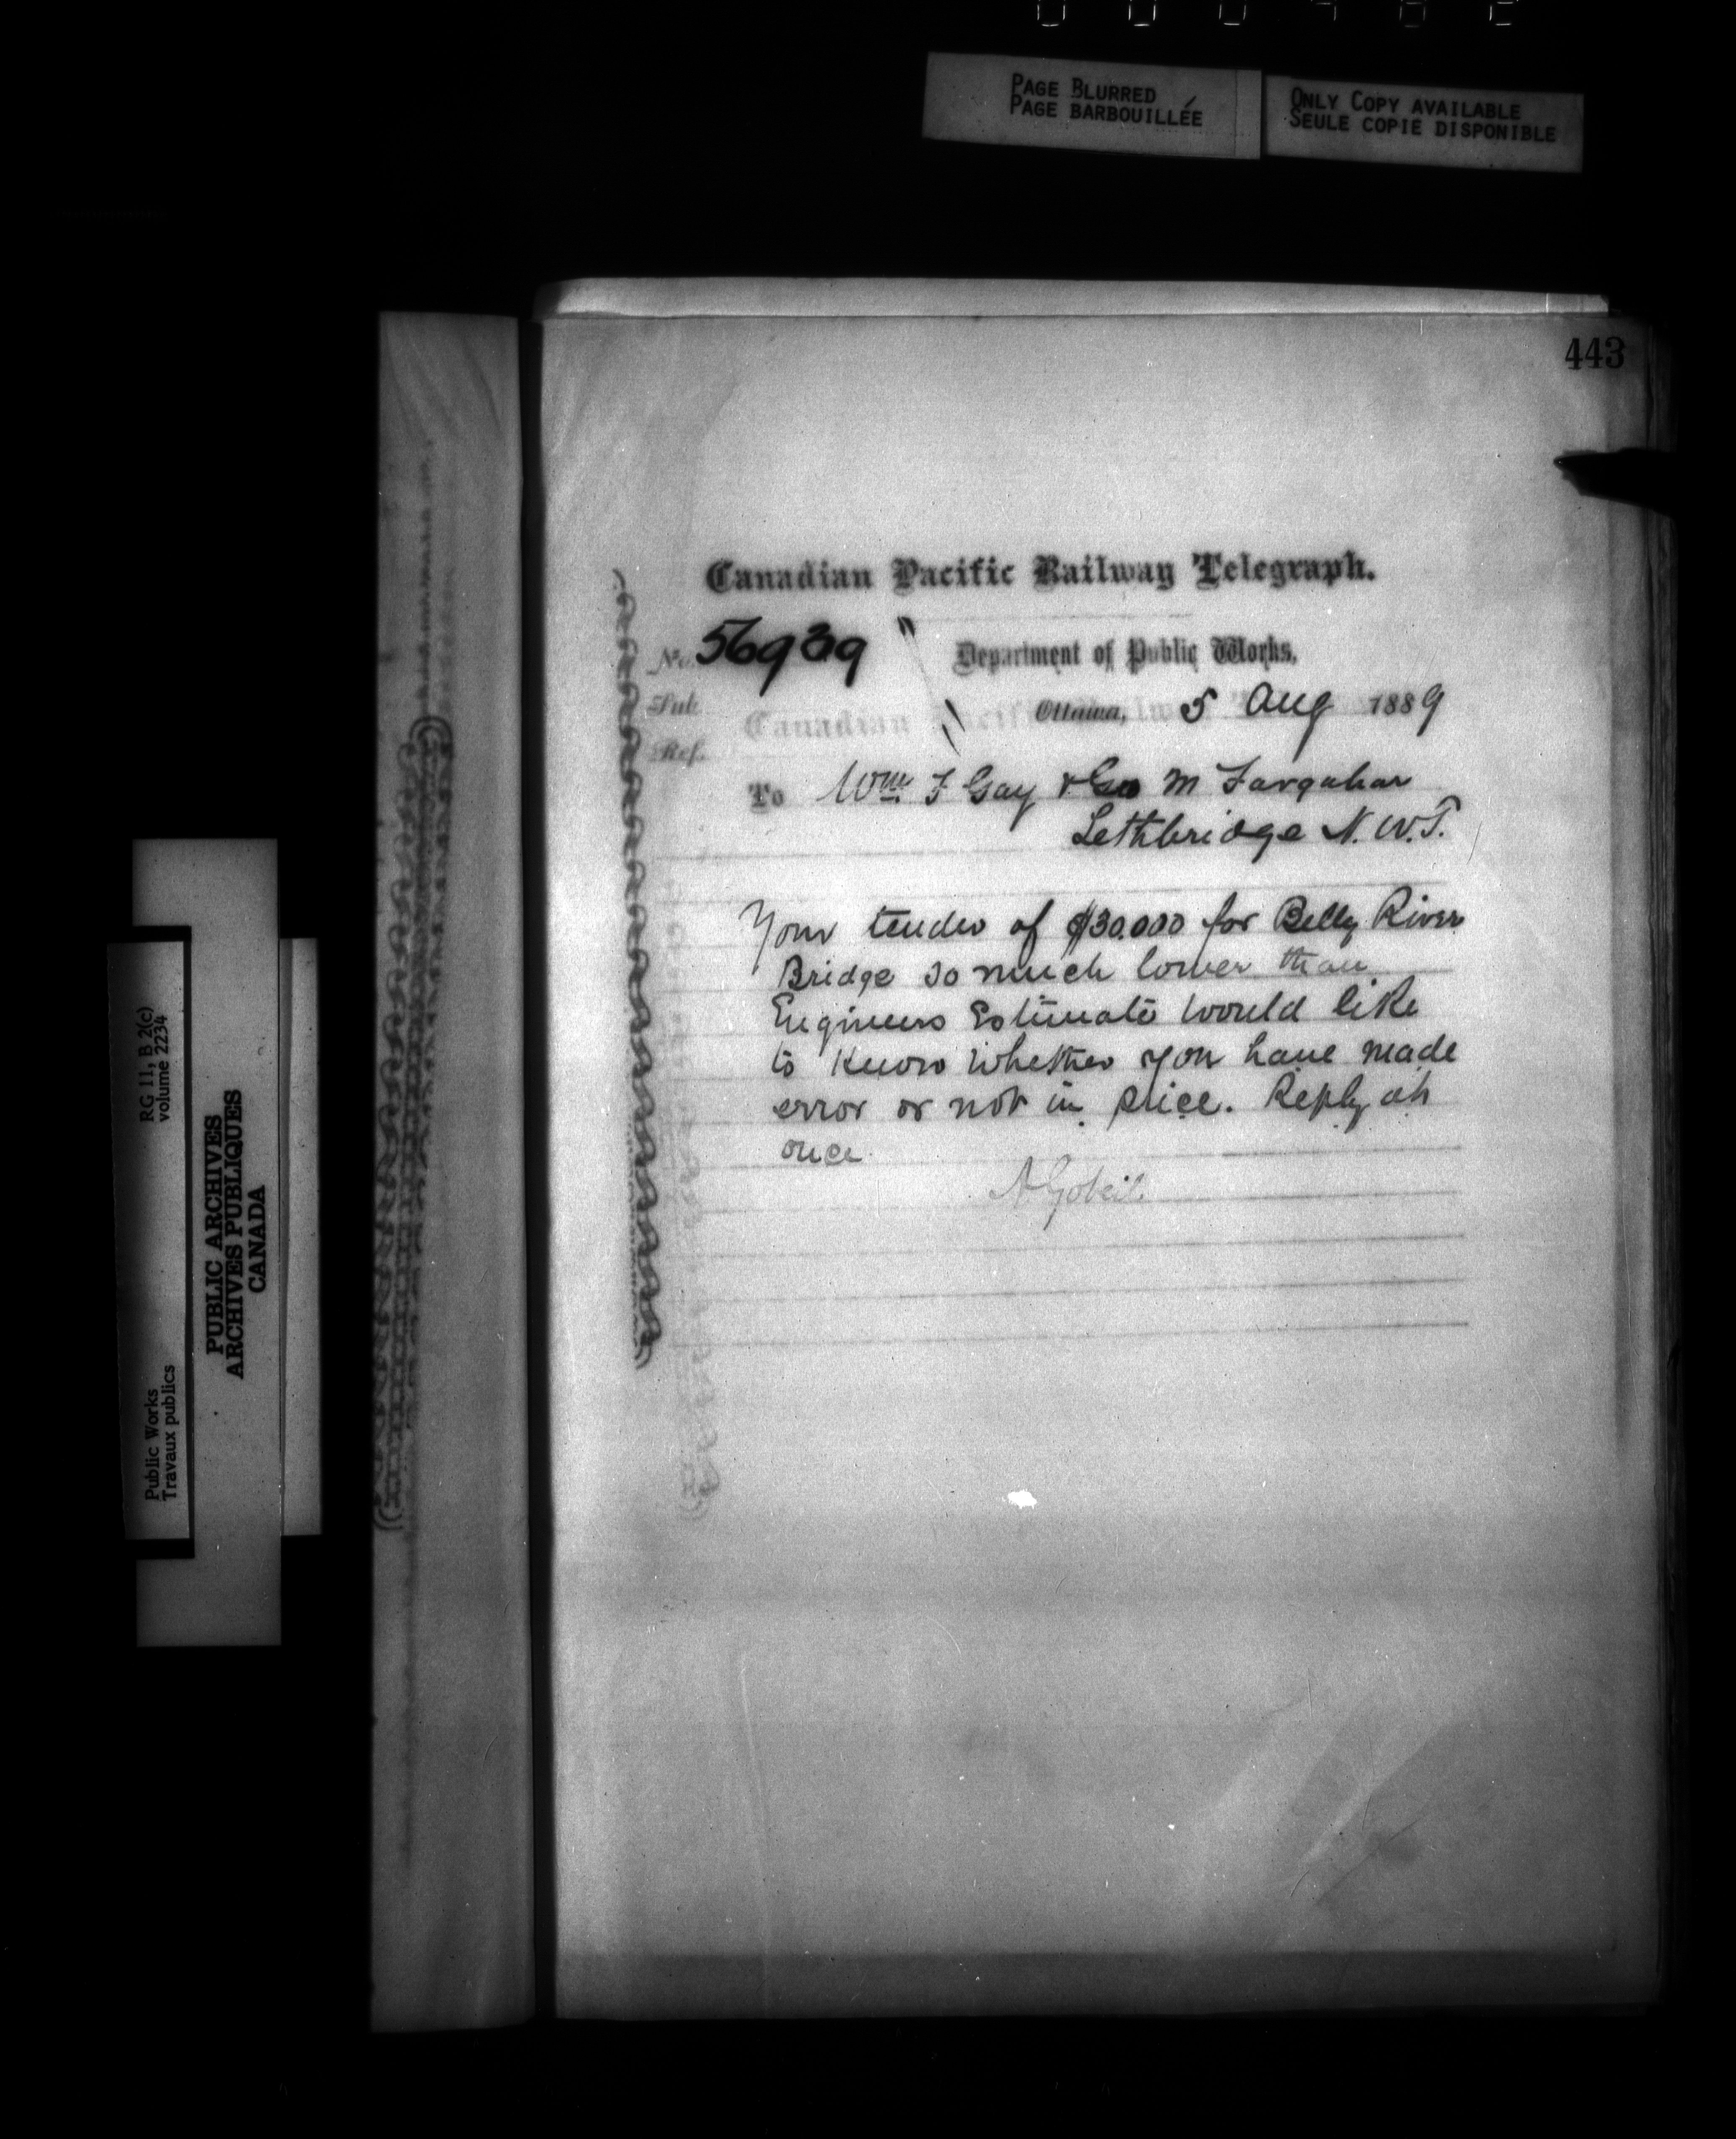 PAGE BLURRED
PAGE BARBOUILLÉE
ONLY COPY AVAILABLE
SEULE COPIE DISPONIBLE
443
Canadian Pacific Railway Telegraph.
No. 56939
Department of Public Works,
Sub.
Ottawa, 5 Aug 1889
Ref.
To Wm F Gay & Geo M Farquhar
Lethbridge N.W.T.
Your tender of $30.000 for Belly River
Bridge so much lower than
Engineers Estimate would like
to know whether you have made
error or not in price. Reply at
once
A Gobeil
RG 11, B 2(c)
volume 2234
Public Works
Travaux publics
PUBLIC ARCHIVES
ARCHIVES PUBLIQUES
CANADA